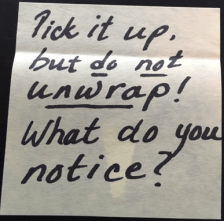 Pick it up,
but do not
unwrap!
What do you
notice?